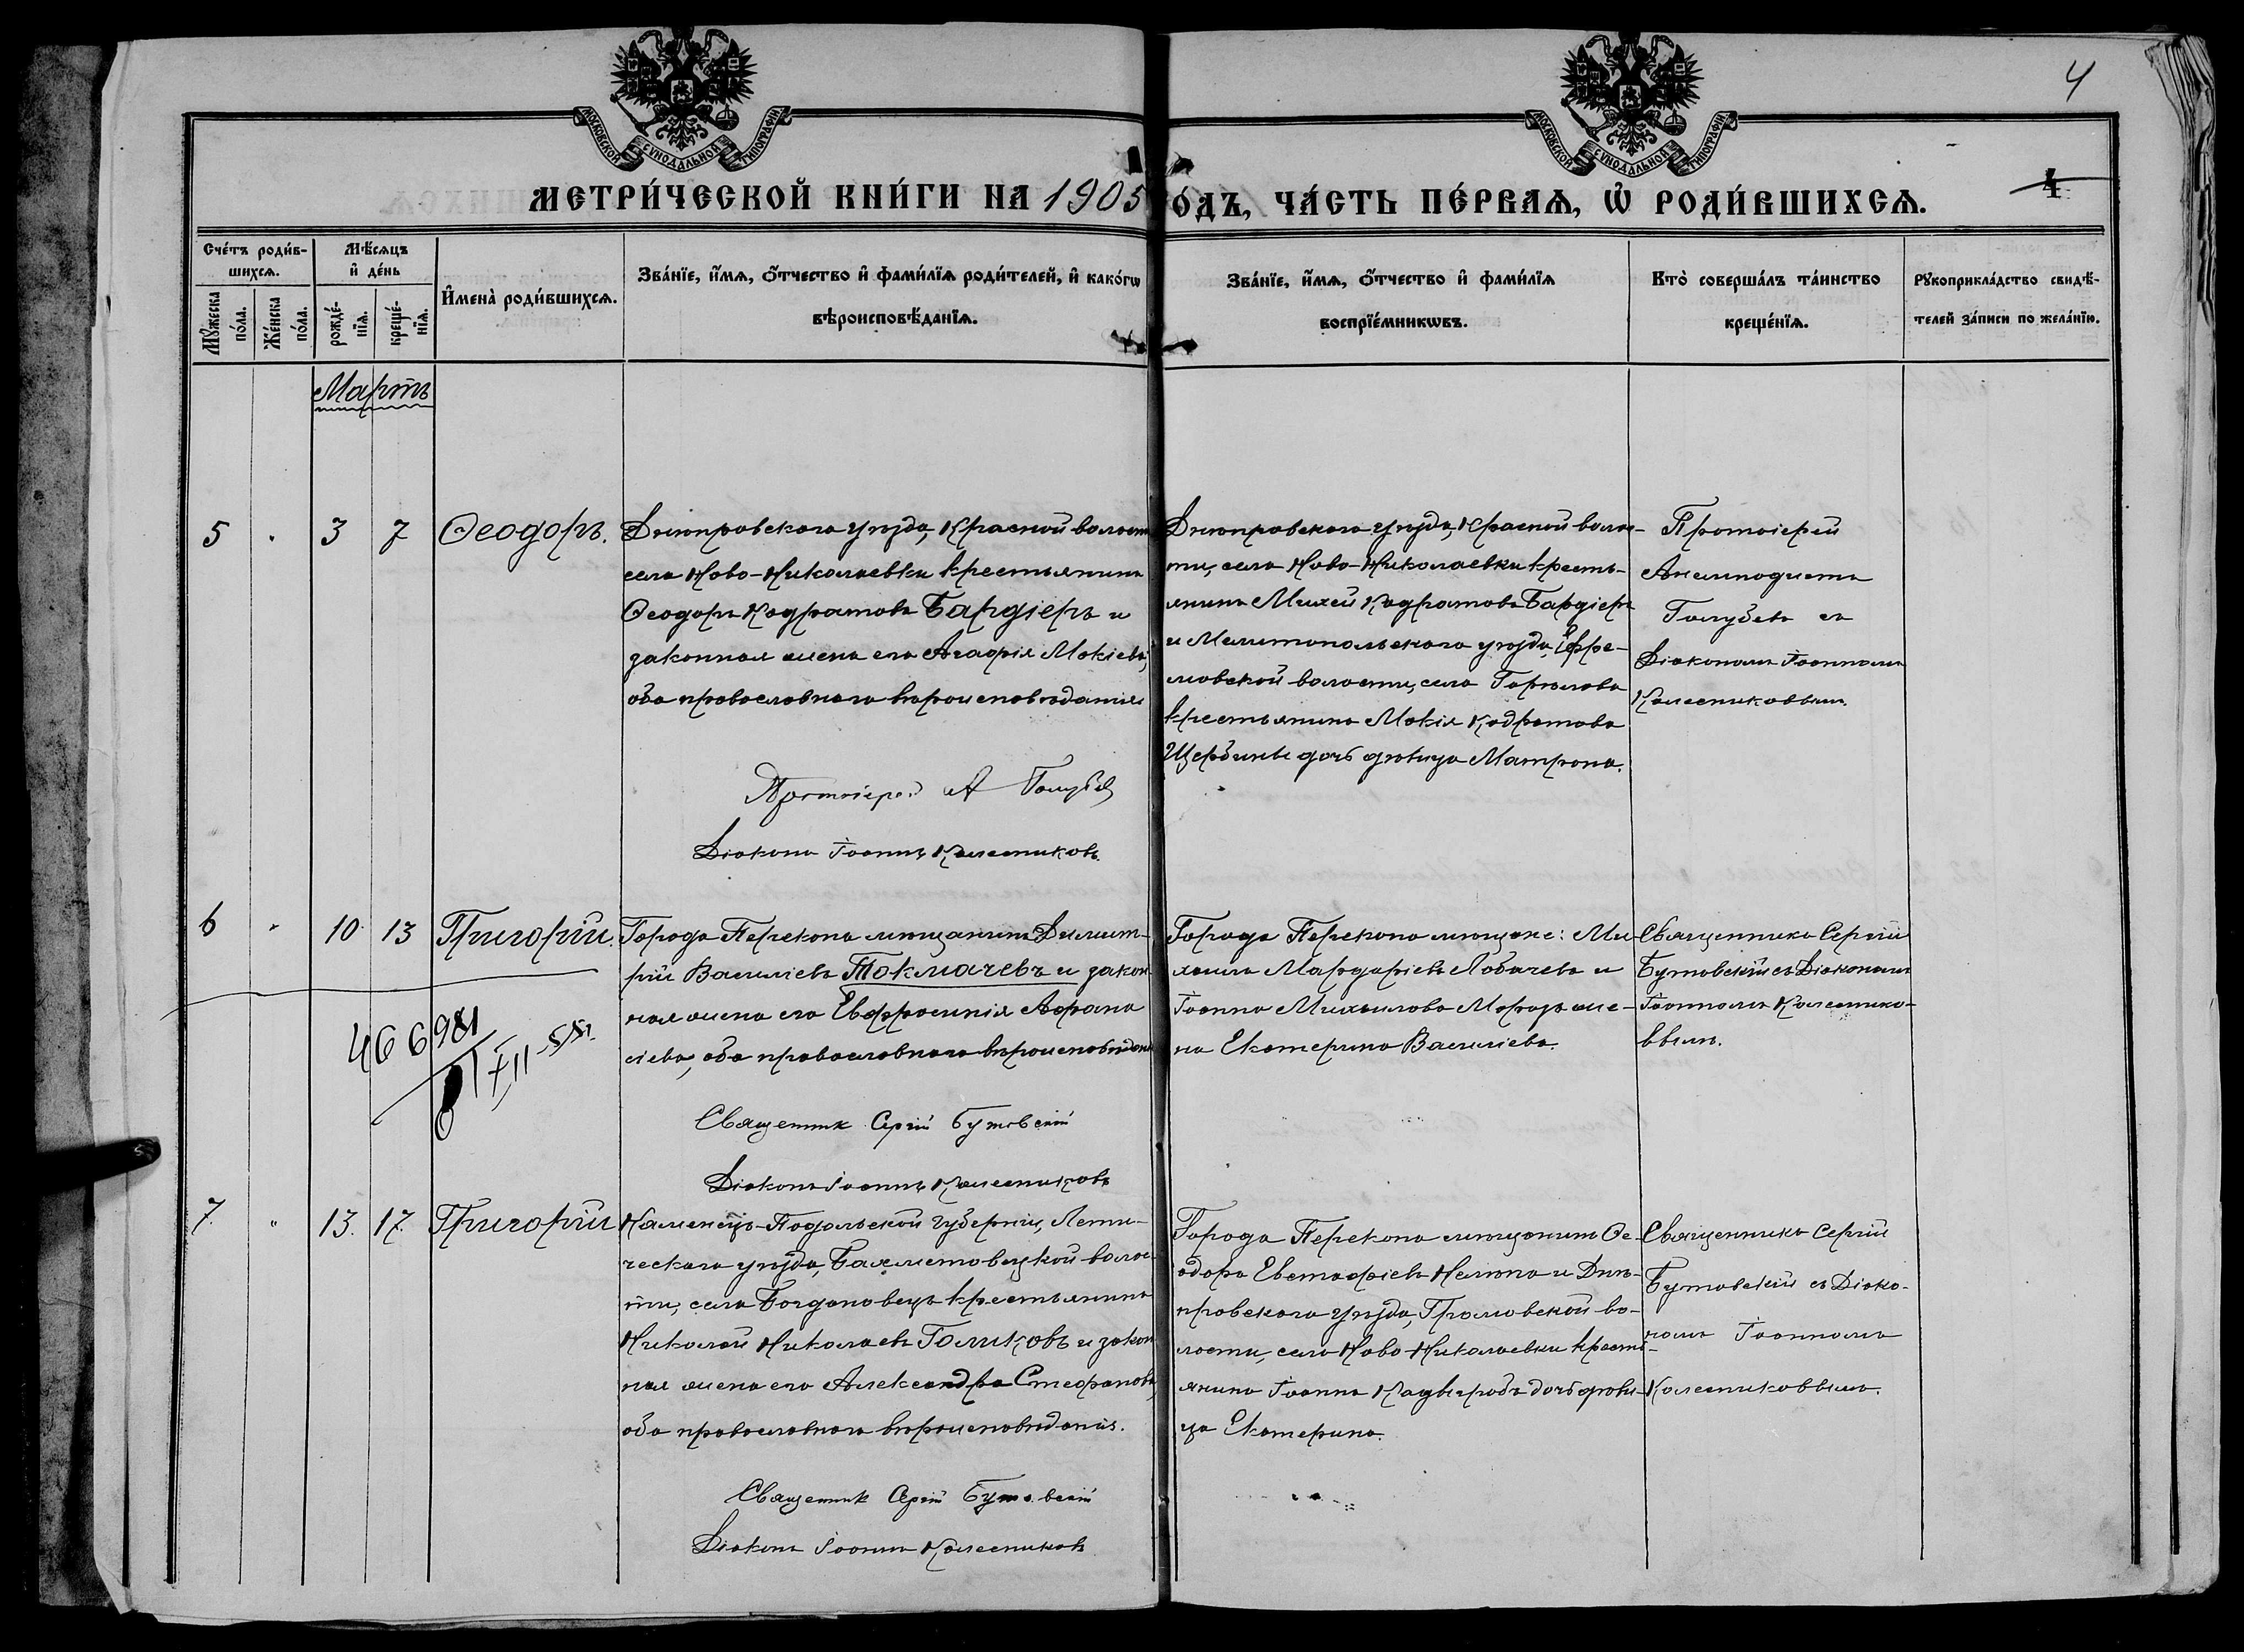 4
МОСКОВСКОЙ СѴНОДАЛЬНОЙ ТИПОГРАФІИ
МОСКОВСКОЙ СѴНОДАЛЬНОЙ ТИПОГРАФІИ
4
МЕТРИ́ЧЕСКОЙ КНИ́ГИ НА 1905 ГО́ДЪ, ЧА́СТЬ ПЕ́РВАѦ, Ѡ҆ РОДИ́ВШИХСѦ.
Счётъ роди́в-
шихсѧ.
Мꙋ́жеска по́ла.
Же́нска по́ла.
Мѣ́сѧцъ
и҆ де́нь
рожде́-
нїѧ.
креще́-
нїѧ.
И҆мена̀ роди́вшихсѧ.
Зва́нїе, и҆́мѧ, ѻ҆́тчество и҆ фами́лїѧ роди́телей, и҆ како́гѡ
вѣроисповѣ́данїѧ.
Зва́нїе, и҆́мѧ, ѻ҆́тчество и҆ фами́лїѧ
воспрїе́мникѡвъ.
Кто̀ соверша́лъ та́инство
креще́нїѧ.
Рꙋкоприкла́дство свидѣ́-
телей за́писи по жела́нїю.
Мартъ
5 " 3 7 Ѳеодоръ.
Днѣпровскаго уѣзда, Красной волости
села Ново-Николаевки крестьянинъ
Ѳеодоръ Кодратовъ Бардіеръ и
законная жена его Агафія Мокіева,
оба православнаго вѣроисповѣданія
Протоіерей А Голубев
Діаконъ Іоаннъ Колесниковъ.
Днѣпровскаго уѣзда, Красной волос-
ти, села Ново-Николаевки кресть-
янинъ Михей Кодратовъ Бардіеръ
и Мелитопольскаго уѣзда, Ефре-
мовской волости, села Горѣлова
крестьянина Мокія Кодратова
Щербины дочь дѣвица Матрона.
Протоіерей
Анемподистъ
Голубевъ съ
Діакономъ Іоанномъ
Колесниковымъ.
6 " 10 13 Григорій.
Города Перекопа мѣщанинъ Димит-
рій Василіевъ Токмачевъ и закон
ная жена его Евфросинія Афана
сіева, оба православнаго вѣроисповѣдан
Священник Сергій Бутовскій
Діаконъ Іоаннъ Колесниковъ
466981
Города Перекопа мѣщане: Ми-
хаилъ Мардаріевъ Лобачевъ и
Іоанна Михаилова Мороз же-
на Екатерина Василіева.
Священникъ Сергій
Бутовскій съ Діакономъ
Іоанномъ Колеснико-
вымъ.
7. " 13. 17. Григорій
Каменецъ-Подольской губерніи, Лети-
ческаго уѣзда, Бахметовецкой волос-
ти, села Богдановецъ крестьянинъ
Николай Николаевъ Голиковъ и закон
ная жена его Александра Стефанова,
оба православнаго вѣроисповѣданія.
Священник Сергій Бутовскій
Діаконъ Іоаннъ Колесниковъ
Города Перекопа мѣщанинъ Ѳе-
одоръ Евстафіевъ и Днѣ-
провскаго уѣзда, Громовской во-
лости, села Ново-Николаевки кресть-
янина Іоанна дочь дѣви-
ца Екатерина.
Священникъ Сергій
Бутовскій съ Діако-
номъ Іоанномъ
Колесниковымъ.